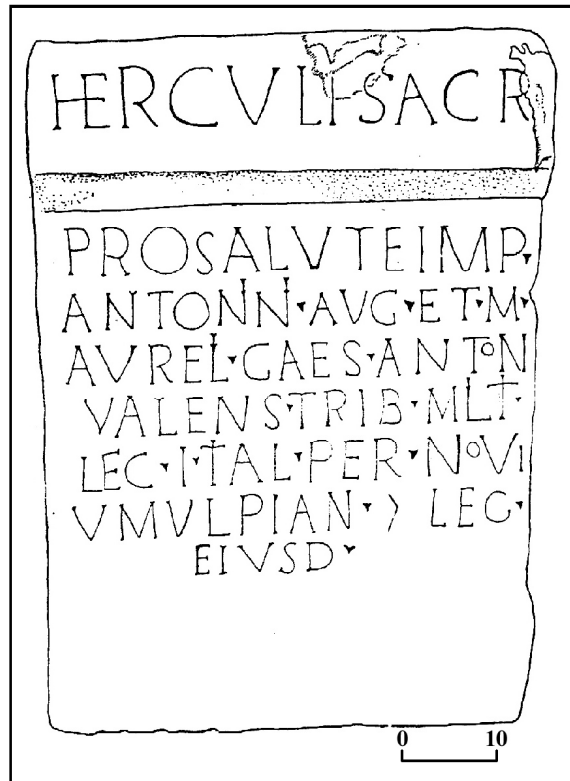 HERCVLI SACR
PROSALVTEIMP▾
ANTONN▾AVG▾ET▾M▾
AVREL▾CAES▾ANTON
VALENS▾TRIB▾MLT▾
LEG▾I▾TAL▾PER▾NOVI
VMVLPIAN▾〉LEG▾
EIVSD▾
0 10